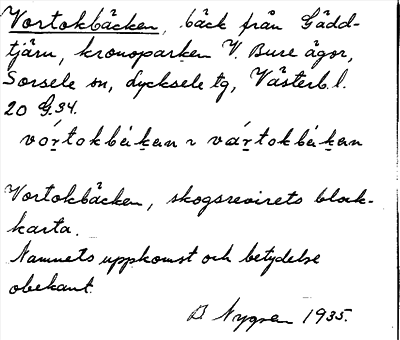 Vortokbäcken, bäck från Gädd-
tjärn, kronoparken V. Bure ägor,
Sorsele sn, Lycksele tg, Västerb. l.
20 G. 34.
Vortokbäcken, skogsrevirets block-
karta.
Namnets uppkomst och betydelse
obekant.
B Nygren 1935.